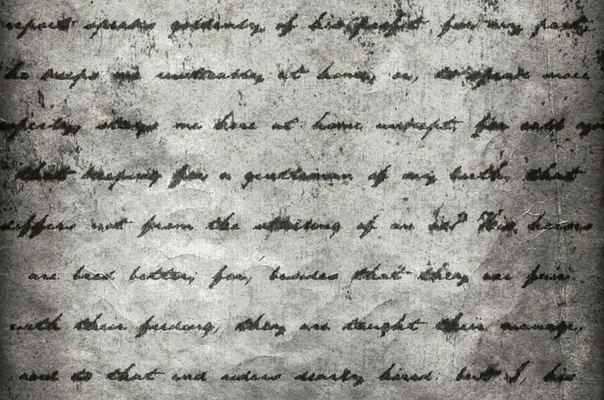 report speaks goldenly of his profit: for my part,
he keeps me rustically at home, or, to speak more
properly, stays me here at home unkept; for call you
that keeping for a gentleman of my birth, that
differs not from the stalling of an ox? His horses
are bred better; for, besides that they are fair
with their feeding, they are taught their manage,
and to that end riders dearly hired: but I, his